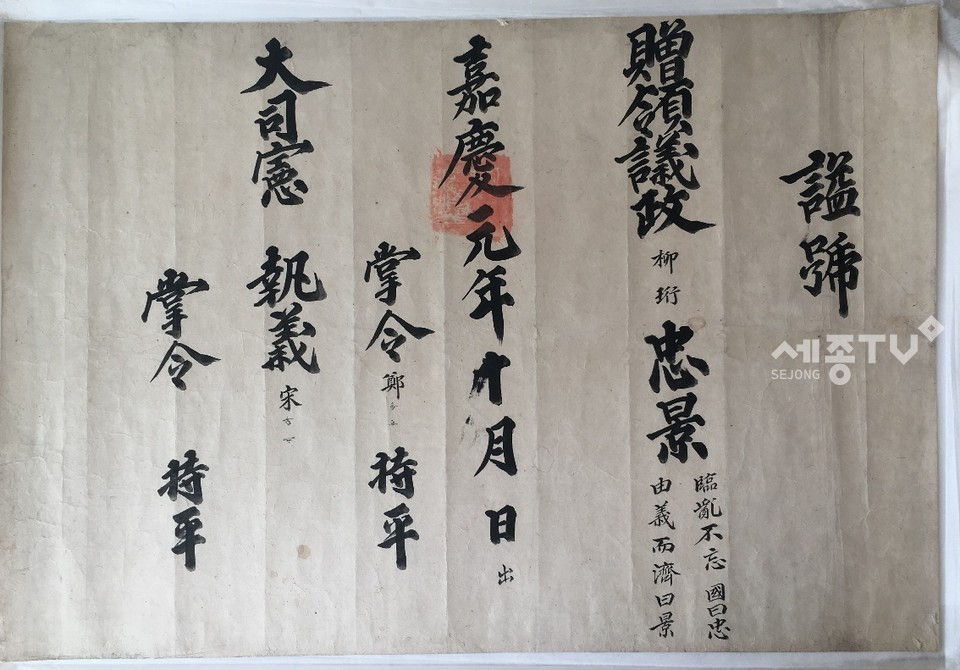 諡號
贈領議政 柳珩 忠景
臨亂不忘國曰忠
由義而濟曰景
嘉慶元年十月 日 出
掌令 鄭 持平
大司憲 執義 宋
掌令 持平
세종TV
SEJONG